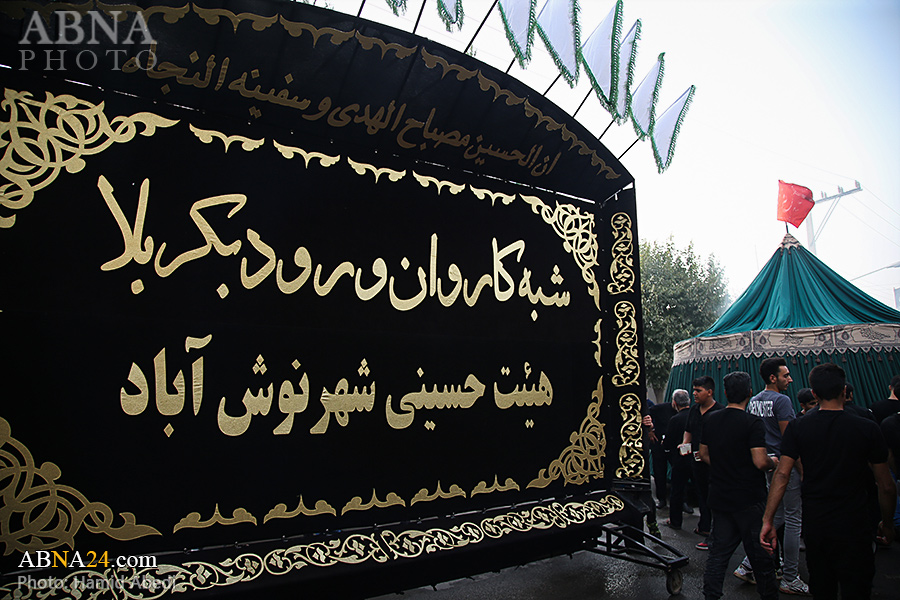 ABNA
PHOTO
ان الحسین مصباح الهدی و سفینه النجاه
شبه کاروان ورود بکربلا
هیئت حسینی شهر نوش آباد
ABNA24.com
Photo: Hamid Abedi